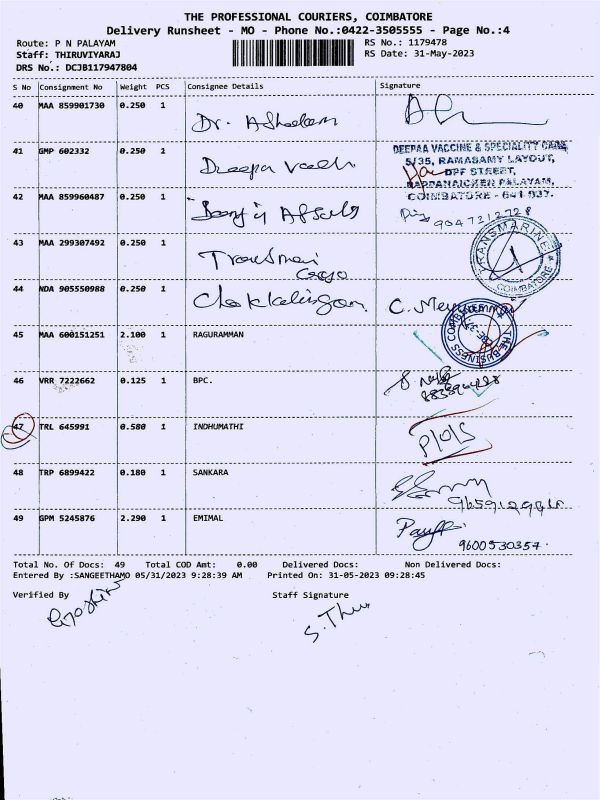 THE PROFESSIONAL COURIERS, COIMBATORE
Delivery Runsheet - MO - Phone No.:0422-3505555 - Page No.:4
Route: P N PALAYAM RS No.: 1179478
Staff: THIRUVIYARAJ RS Date: 31-May-2023
DRS No.: DCJB117947804
S No Consignment No Weight PCS Consignee Details Signature
40 MAA 859901730 0.250 1 Dr.
41 GMP 602332 0.250 1 Deepa
DEEPAA VACCINE & SPECIALITY CARE,
5/35, RAMASAMY LAYOUT,
OPF STREET,
PAPPANAICKEN PALAYAM,
COIMBATORE - 641 037.
42 MAA 859960487 0.250 1
9047312728
43 MAA 299307492 0.250 1 Transmari
Cargo
TRANSMARINE
COIMBATORE
44 NDA 905550988 0.250 1 Chokkalingam C.
THE BUSINESS
45 MAA 600151251 2.100 1 RAGURAMMAN
46 VRR 7222662 0.125 1 BPC.
47 TRL 645991 0.580 1 INDHUMATHI P/O/S
48 TRP 6899422 0.180 1 SANKARA
49 GPM 5245876 2.290 1 EMIMAL
9600530357.
Total No. Of Docs: 49 Total COD Amt: 0.00 Delivered Docs: Non Delivered Docs:
Entered By :SANGEETHAMO 05/31/2023 9:28:39 AM Printed On: 31-05-2023 09:28:45
Verified By Staff Signature